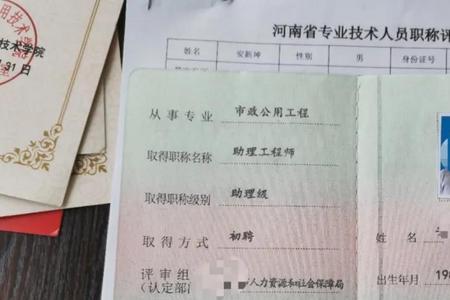 术学院
31 日
河南省专业技术人员职称评
姓名 安新坤 性别 男 身份证号
从事专业 市政公用工程
取得职称名称 助理工程师
取得职称级别 助理级
取得方式 初聘
评审组
(认定部 人力资源和社会保障局
姓名
出生年月 19